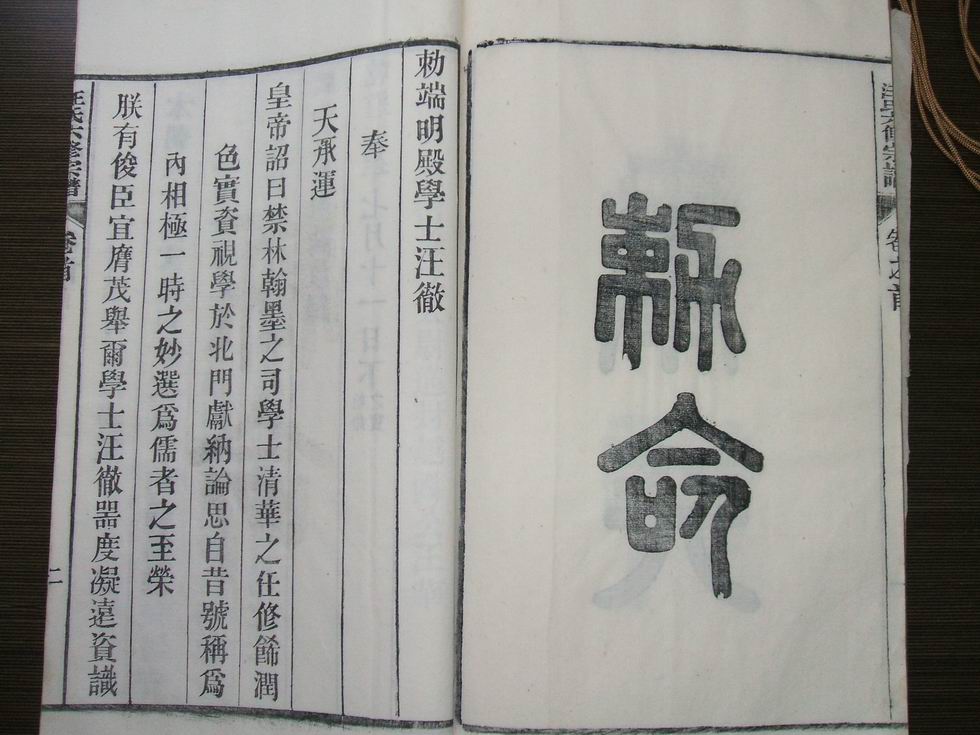 汪氏六修宗譜
卷之首
勅命
勅端明殿學士汪徹
奉
天承運
皇帝詔曰禁林翰墨之司學士清華之任修餙潤
色實資視學於北門獻納論思自昔號稱爲
內相極一時之妙選爲儒者之至榮
朕有俊臣宜膺茂舉爾學士汪徹器度凝遠資識
汪氏六修宗譜
卷首
二